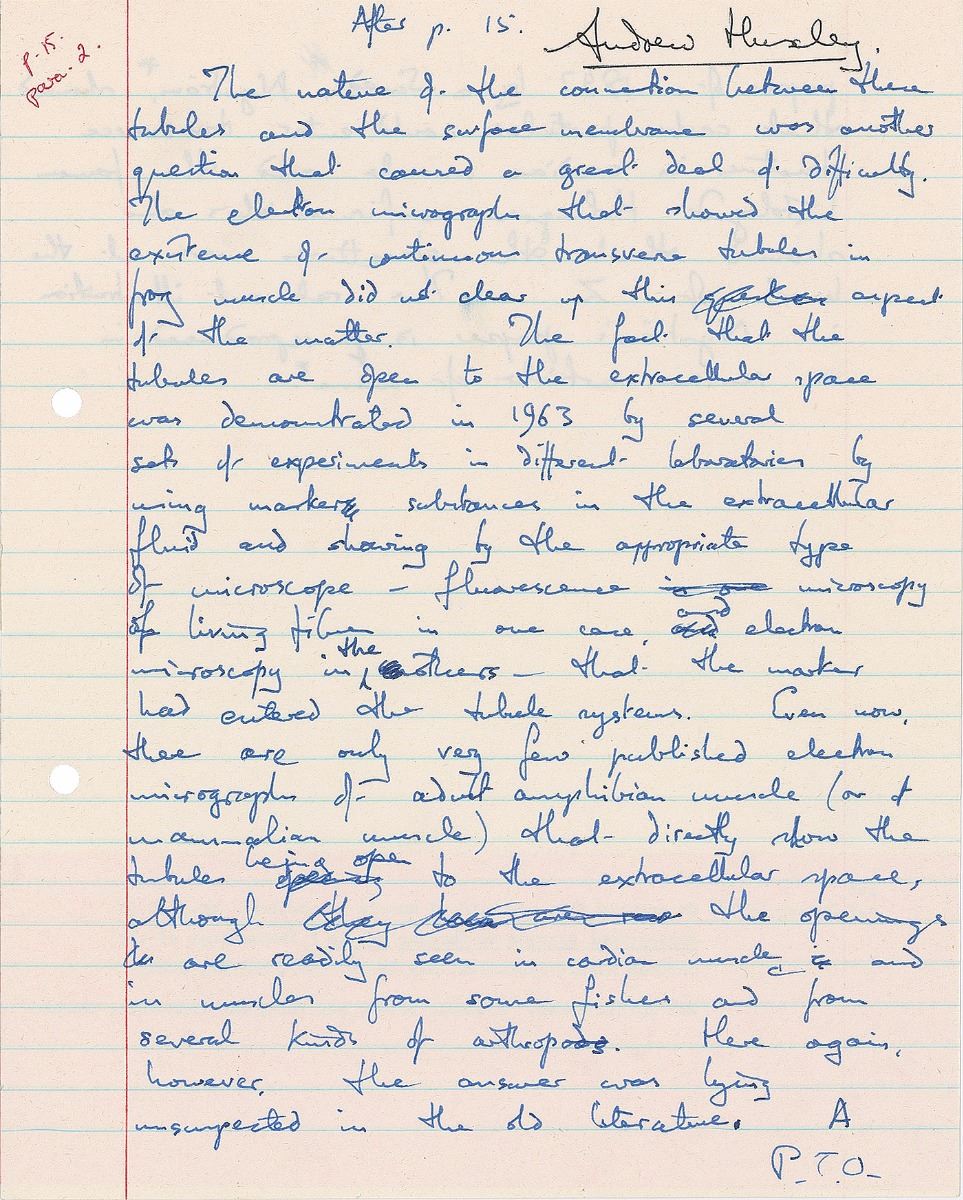 After p. 15.
Andrew Huxley.
p. 15.
para. 2.
The nature of the connection between these
tubules and the surface membrane was another
question that caused a great deal of difficulty.
The electron micrographs that showed the
existence of continuous transverse tubules in
frog muscle did not clear up this question aspect
of the matter. The fact that the
tubules are open to the extracellular space
was demonstrated in 1963 by several
sets of experiments in different laboratories by
using marker substances in the extracellular
fluid and showing by the appropriate type
of microscope – fluorescence in one microscopy
of living fibres in one case, and electron
microscopy in the others – that the marker
had entered the tubule systems. Even now,
there are only very few published electron
micrographs of adult amphibian muscle (or of
mammalian muscle) that directly show the
tubules being open to the extracellular space,
although they the openings
are readily seen in cardiac muscle and
in muscles from some fishes and from
several kinds of arthropods. Here again,
however, the answer was lying
unsuspected in the old literature. A
P.T.O.